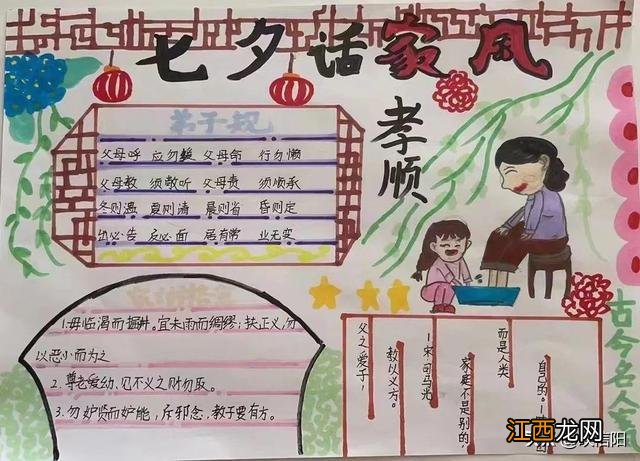 七夕话家风
孝顺
弟子规
父母呼 应勿缓 父母命 行勿懒
父母教 须敬听 父母责 须顺承
冬则温 夏则凊 晨则省 昏则定
出必告 反必面 居有常 业无变
1.毋临渴而掘井。宜未雨而绸缪；扶正义，勿
以恶小而为之
2.尊老爱幼，见不义之财勿取。
3.勿妒贤而妒能，斥邪念，教子要有方。
古今名人
父之爱子，
教以义方。
1宋司马光
家庭不是别的，
而是人类
自己的。
江西龙网
信阳